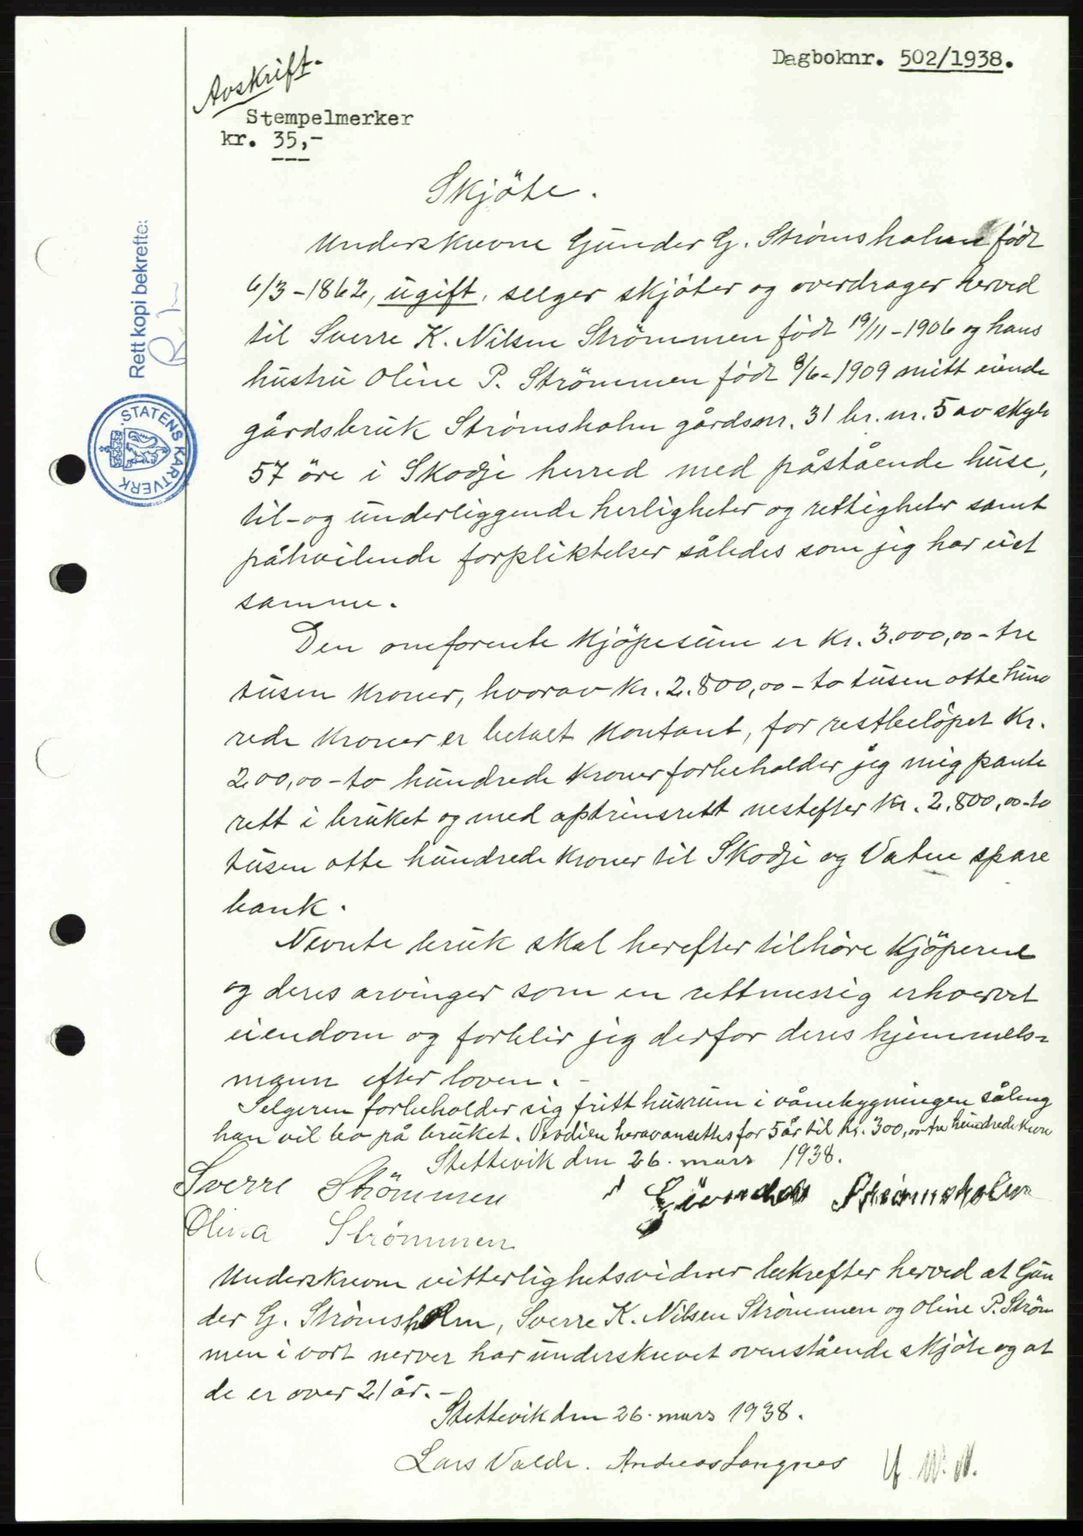 Dagboknr. 502/1938.
Avskrift.
Stempelmerker
kr. 35,-
Rett kopi bekreftes
STATENS KARTVERK
Skjöte.
Underskrevne Gunder G. Strømsholm født
6/3-1862, ugift, selger skjöter og overdrager herved
til Sverre K. Nilsen Strömmen født 19/11-1906 og hans
hustru Oline P. Strömmen født 8/6-1909 mitt eiende
gårdsbruk Strømsholm gårdsnr. 31 br. nr. 5 av skyld
57 öre i Skodje herred med påstående huse,
til- og underliggende herligheter og rettigheter samt
påhvilende forpliktelser således som jeg har eiet
samme.
Den omforente kjöpesum er kr. 3.000,00 - tre
tusen kroner, hvorav kr. 2.800,00 - to tusen otte hund
rede kroner er betalt kontant, for restbelöpet kr.
200,00 - to hundrede kroner forbeholder jeg mig pante
rett i bruket og med optrinsrett nestefter kr. 2.800,00 - to
tusen otte hundrede kroner til Skodje og Vatne spare
bank.
Nevnte bruk skal herefter tilhöre kjöperne
og deres arvinger som en rettmessig erhvervet
eiendom og forblir jeg derfor deres hjemmels-
mann efter loven. -
Selgeren forbeholder sig fritt husrum i vånebygningen såleng
han vil bo på bruket. Verdien herav ansettes for 5 år til kr. 300,00 tre hundrede kroner
Stettevik den 26. mars 1938.
Sverre Strömmen Gunder Strømsholm
Olina Strömmen
Underskrevne vitterlighetsvidner bekrefter herved at Gun
der G. Strømsholm, Sverre K. Nilsen Strömmen og Oline P. Ström
men i vort nerver har underskrevet ovenstående skjöte og at
de er over 21 år. -
Stettevik den 26. mars 1938.
Lars Valde. Andreas Langnes